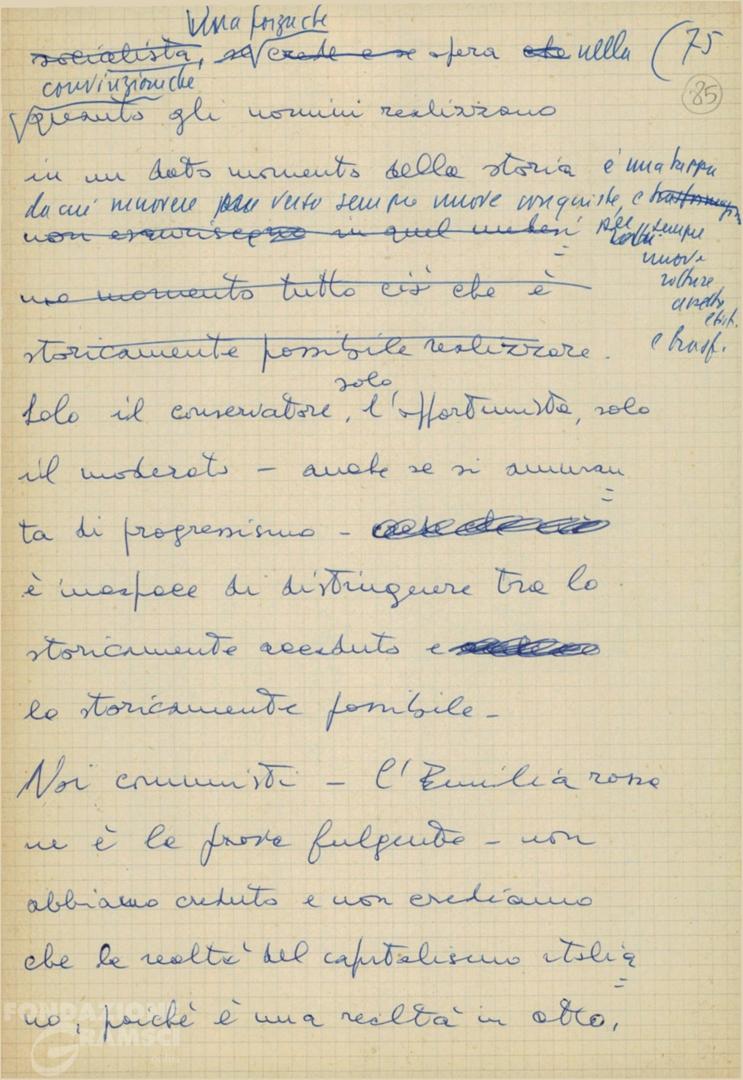 una forza che
socialista, se crede e se opera che nella (75
convinzione che 85
quanto gli uomini realizzano
in un dato momento della storia è una tappa
da cui muovere per verso sempre nuove conquiste, e
non esauriscono in quel medesi= sempre
nuove
rotture
mo momento tutto ciò che è
storicamente possibile realizzare. e trasf.
solo
Solo il conservatore, l'opportunista, solo
il moderato – anche se si ammran=
ta di progressismo –
è incapace di distinguere tra lo
storicamente accaduto e
lo storicamente possibile –
Noi comunisti – l'Emilia rossa
ne è la prova fulgente – non
abbiamo creduto e non crediamo
che la realtà del capitalismo italia=
no, poiché è una realtà in atto,
FONDAZIONE
GRAMSCI